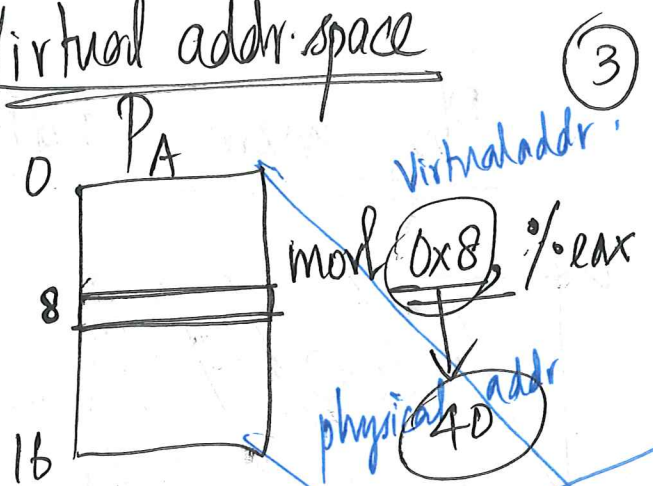 Virtual addr. space
3
PA
Virtualaddr.
0
movl 0x8, %eax
8
physical addr
40
16